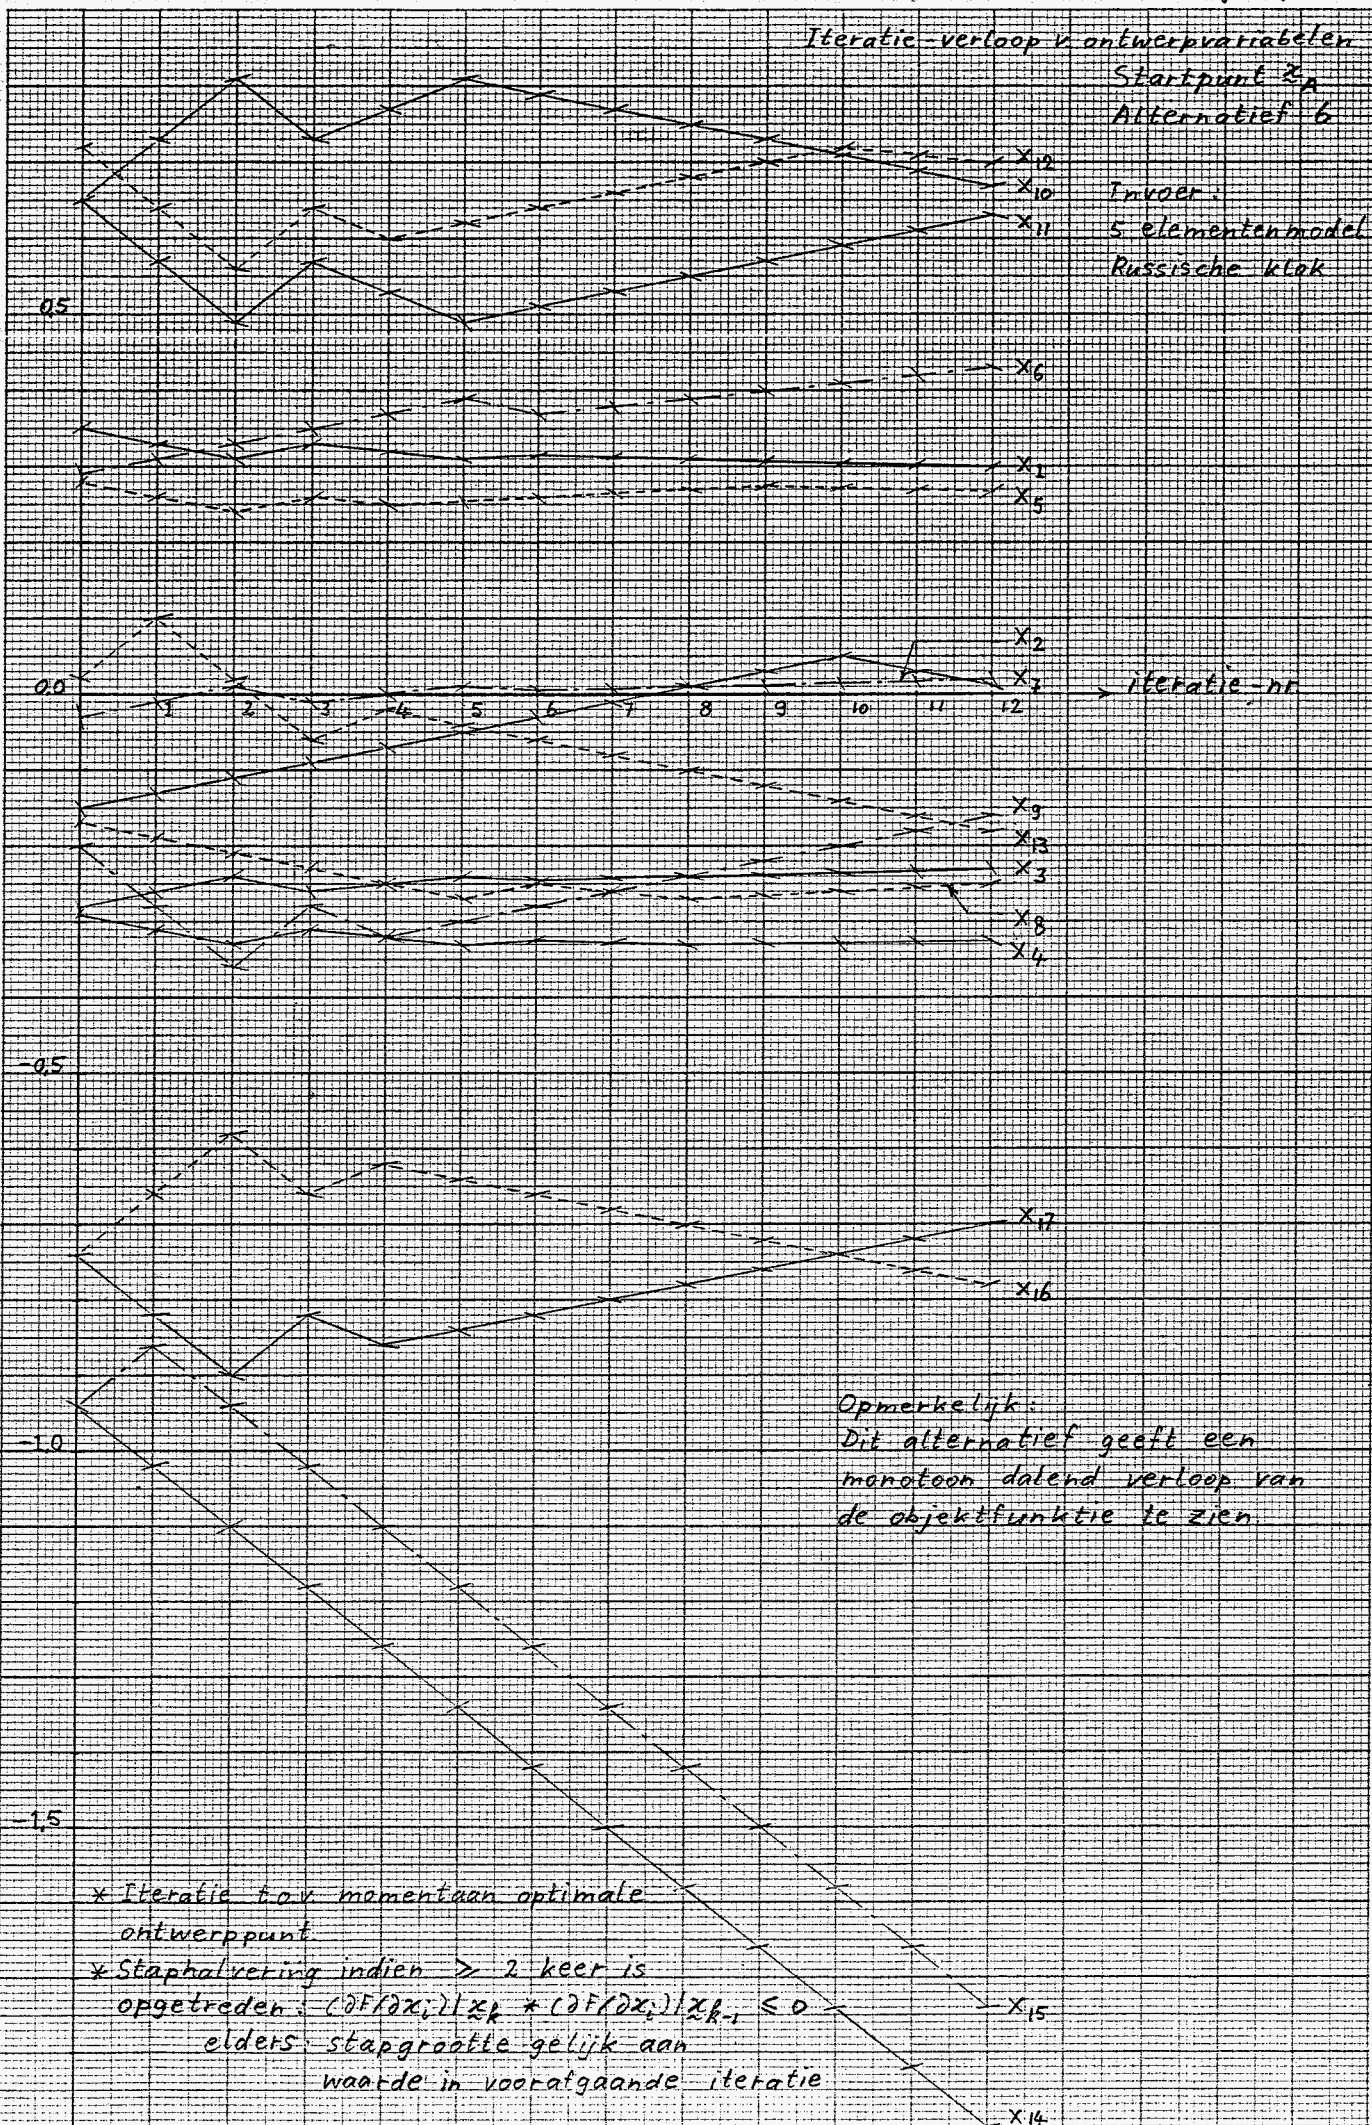 Iteratie-verloop v. ontwerpvariabelen
Startpunt x_A
Alternatief 6
Invoer:
5 elementenmodel
Russische klok
X12
X10
X11
0,5
X6
X1
X5
X2
0,0
X7
iteratie-nr
1 2 3 4 5 6 7 8 9 10 11 12
X9
X13
X3
X8
X4
-0,5
X17
X16
Opmerkelijk:
-1,0
Dit alternatief geeft een
monotoon dalend verloop van
de objektfunktie te zien.
-1,5
* Iteratie t.o.v. momentaan optimale
ontwerppunt.
* Staphalvering indien ≥ 2 keer is
opgetreden: (∂F/∂x_i)|x_k * (∂F/∂x_i)|x_k-1 ≤ 0
X15
elders: stapgrootte gelijk aan
waarde in voorafgaande iteratie
X14